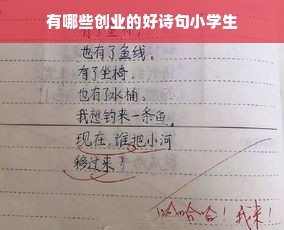 有哪些创业的好诗句小学生
也有了鱼线。
有了坐椅，
也有了水桶。
我想钓来一条鱼。
现在，谁把小河
移过来？
哈哈哈！我来！